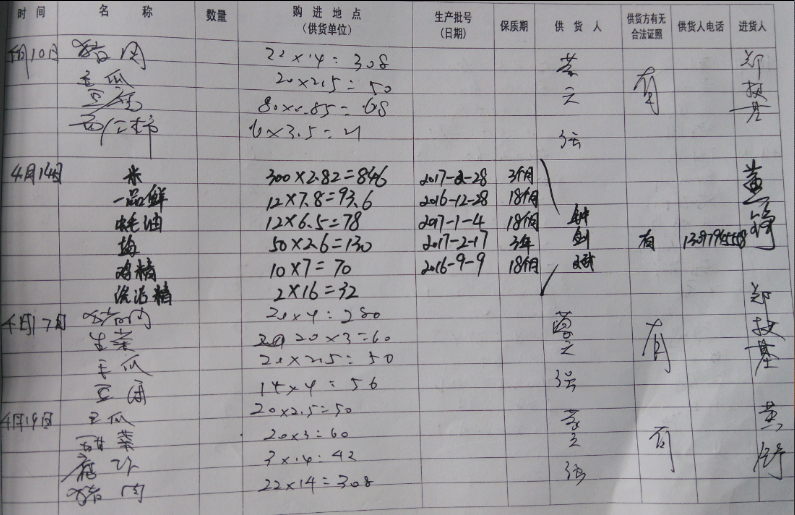 时间 名称 数量 购进地点(供货单位) 生产批号(日期) 保质期 供货人 供货方有无合法证照 供货人电话 进货人
4月10日 猪肉 22×14=308 有 郑
毛瓜 20×2.5=50
80×0.85=68
西红柿 6×3.5=21
4月14日 米 300×2.82=846 2017-2-28 3个月 黄
一品鲜 12×7.8=93.6 2016-12-28 18个月
蚝油 12×6.5=78 2017-1-4 18个月 钟
盐 50×2.6=130 2017-2-17 3年 剑 有
鸡精 10×7=70 2016-9-9 18个月
洗洁精 2×16=32
4月17日 猪肉 20×14=280 有 郑
生菜 20×3=60
毛瓜 20×2.5=50
14×4=56
4月19日 毛瓜 20×2.5=50 有 黄
甜菜 20×3=60
腐 3×14=42
猪肉 22×14=308